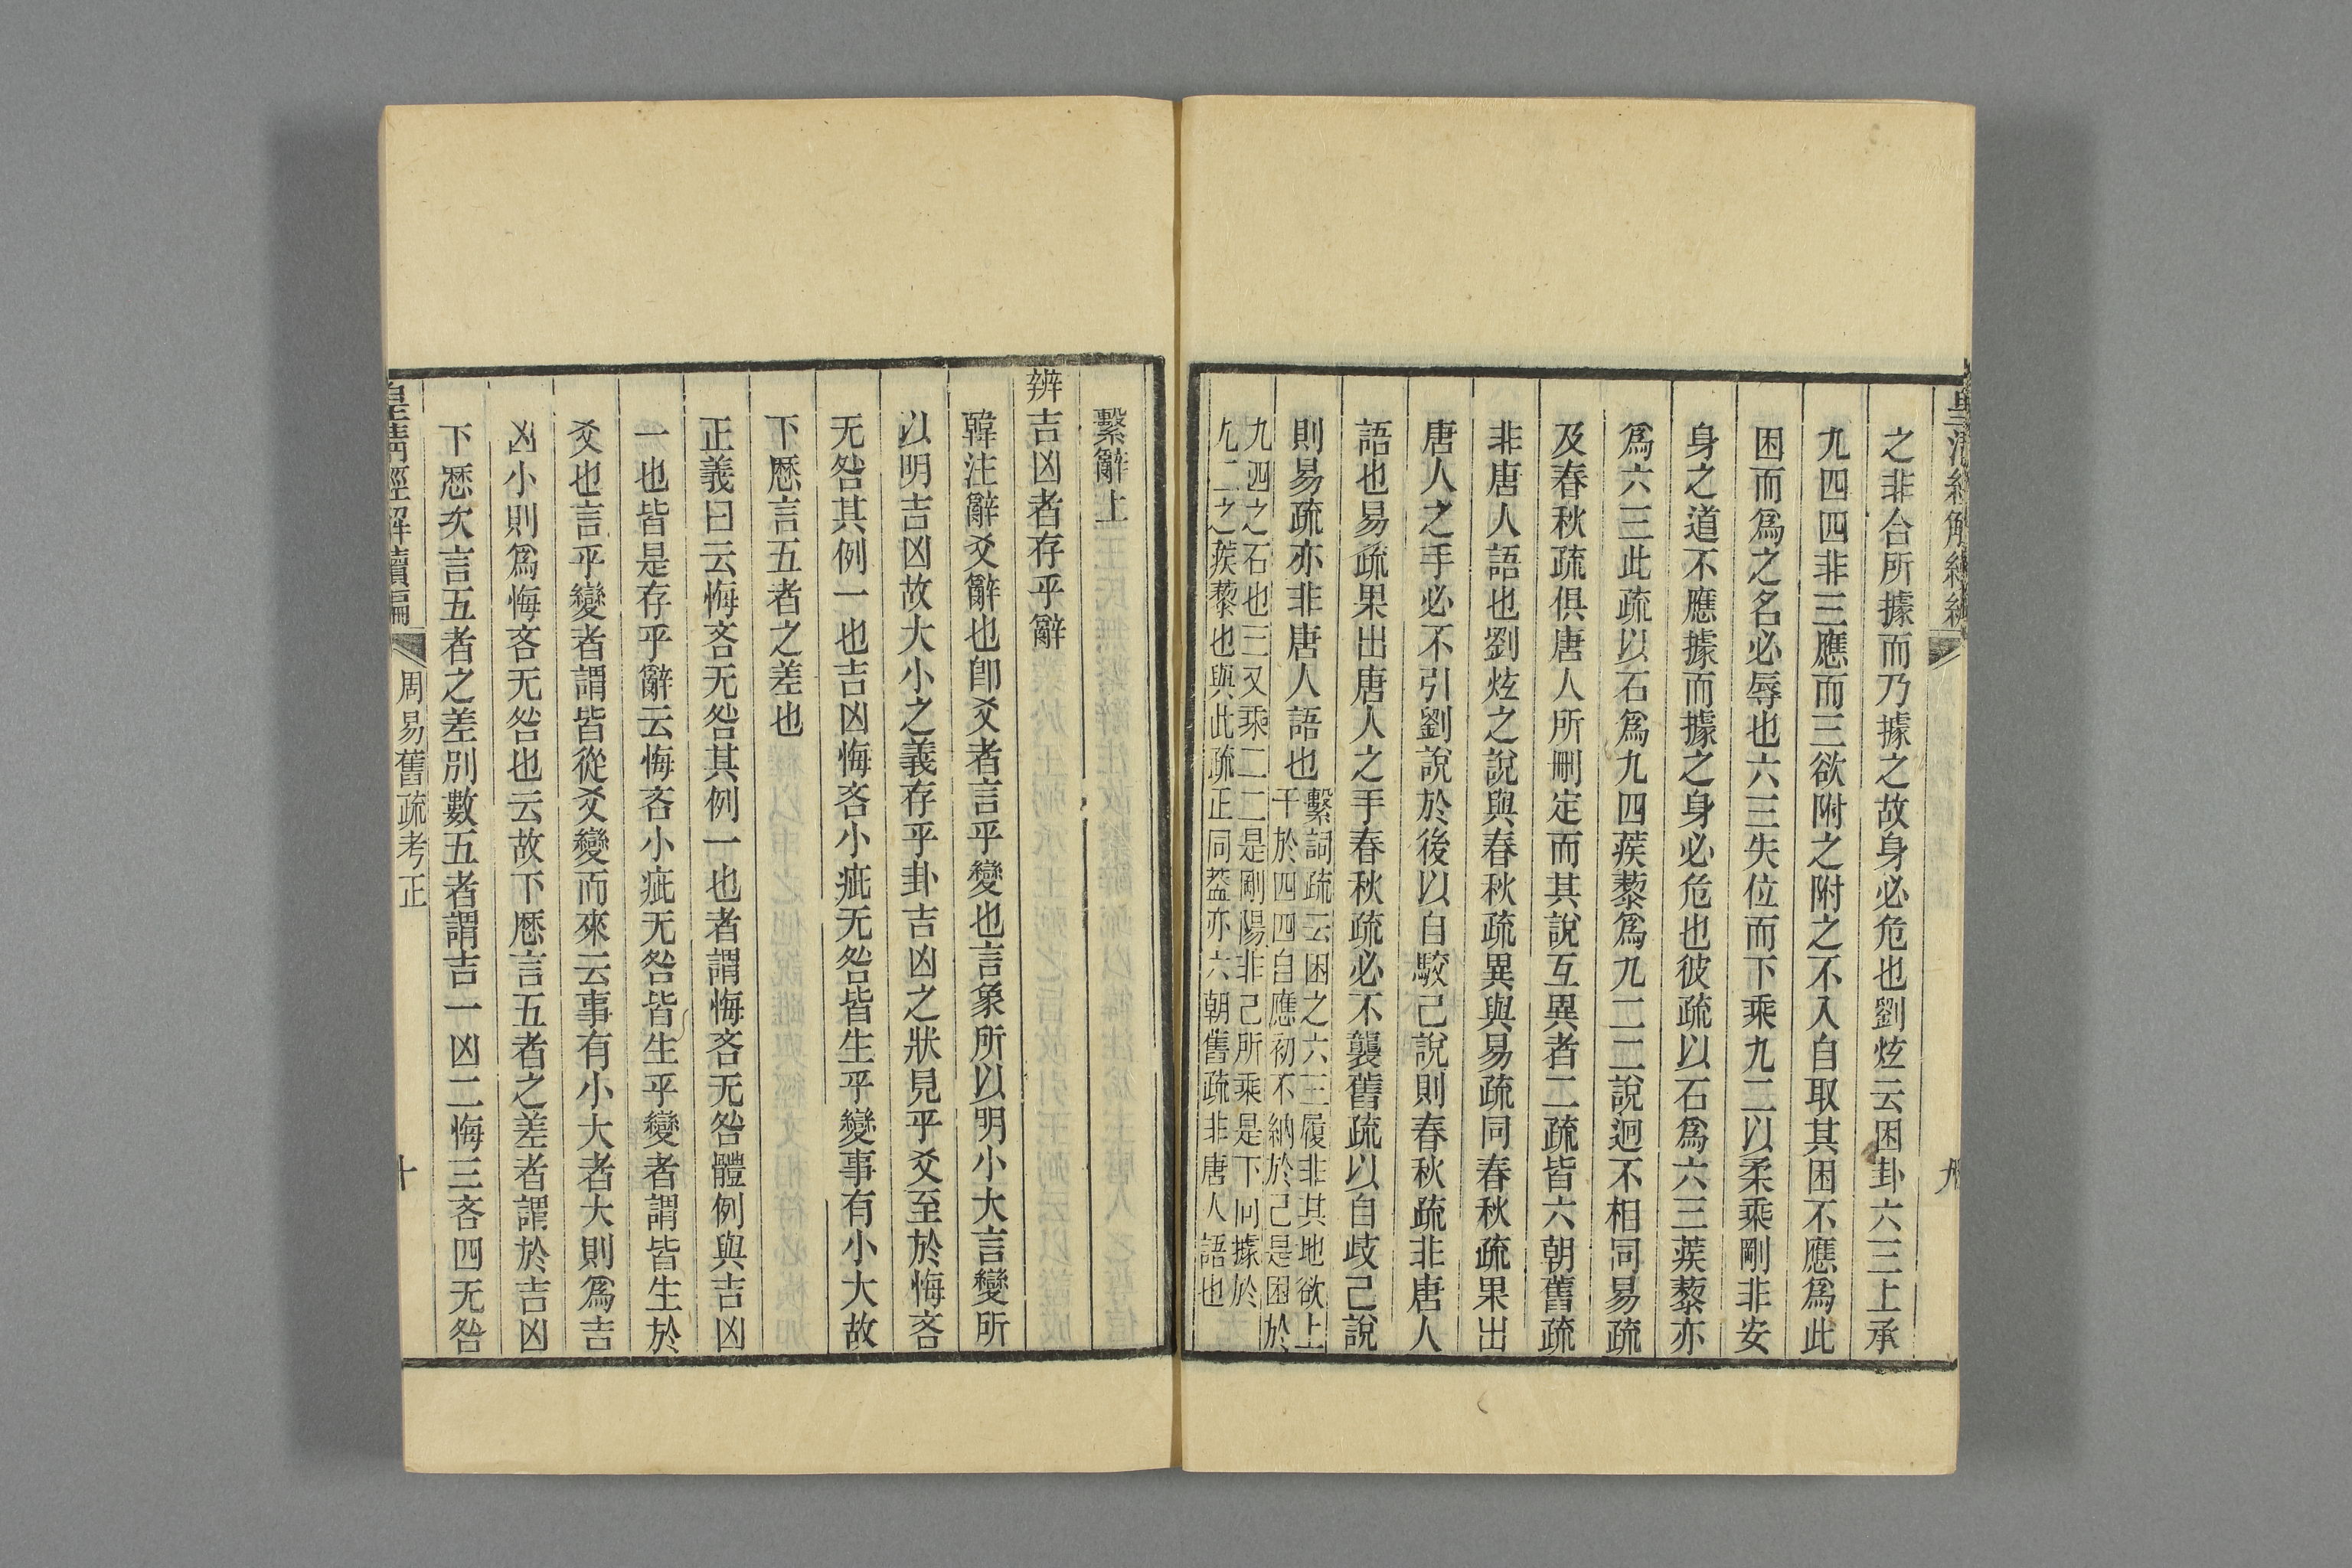 之非合所據而乃據之故身必危也劉炫云困卦六三上承
九四四非三應而三欲附之附之不入自取其困不應爲此
困而爲之名必辱也六三失位而下乘九二以柔乘剛非安
身之道不應據而據之身必危也彼疏以石爲六三蒺藜亦
爲六三此疏以石爲九四蒺藜爲九二二說迥不相同易疏
及春秋疏俱唐人所刪定而其說互異者二疏皆六朝舊疏
非唐人語也劉炫之說與春秋疏異與易疏同春秋疏果出
唐人之手必不引劉說於後以自駮己說則春秋疏非唐人
語也易疏果出唐人之手春秋疏必不襲舊疏以自歧己說
則易疏亦非唐人語也
繫詞疏云困之六三履非其地欲上
干於四四自應初不納於己是困於
九四之石也三又乘二二是剛陽非己所乘是下向據於
九二之蒺藜也與此疏正同蓋亦六朝舊疏非唐人語也
九
繫辭上
辨吉凶者存乎辭
韓注辭爻辭也卽爻者言乎變也言象所以明小大言變所
以明吉凶故大小之義存乎卦吉凶之狀見乎爻至於悔吝
无咎其例一也吉凶悔吝小疵无咎皆生乎變事有小大故
下歷言五者之差也
正義曰云悔吝无咎其例一也者謂悔吝无咎體例與吉凶
一也皆是存乎辭云悔吝小疵无咎皆生乎變者謂皆生於
爻也言乎變者謂皆從爻變而來云事有小大者大則爲吉
凶小則爲悔吝无咎也云故下歷言五者之差者謂於吉凶
下歷次言五者之差別數五者謂吉一凶二悔三吝四无咎
皇清經解續編
周易舊疏考正
十